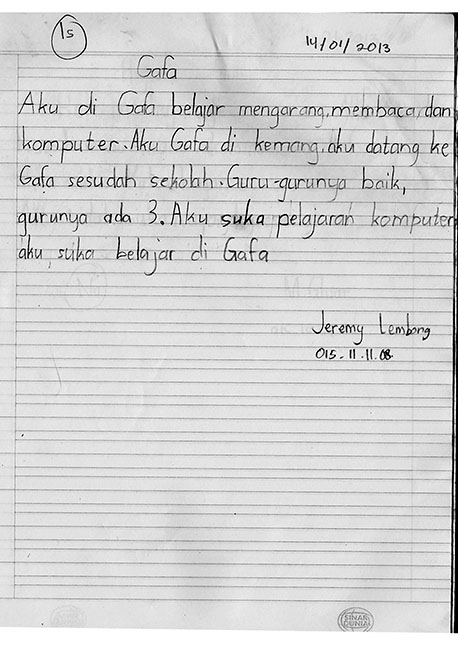 15
14/01/2013
Gafa
Aku di Gafa belajar mengarang, membaca, dan
komputer. Aku Gafa di kemang, aku datang ke
Gafa sesudah sekolah. Guru-gurunya baik,
gurunya ada 3. Aku suka pelajaran komputer,
aku suka belajar di Gafa
Jeremy Lembong
015-11-11.08
SINAR
DUNIA